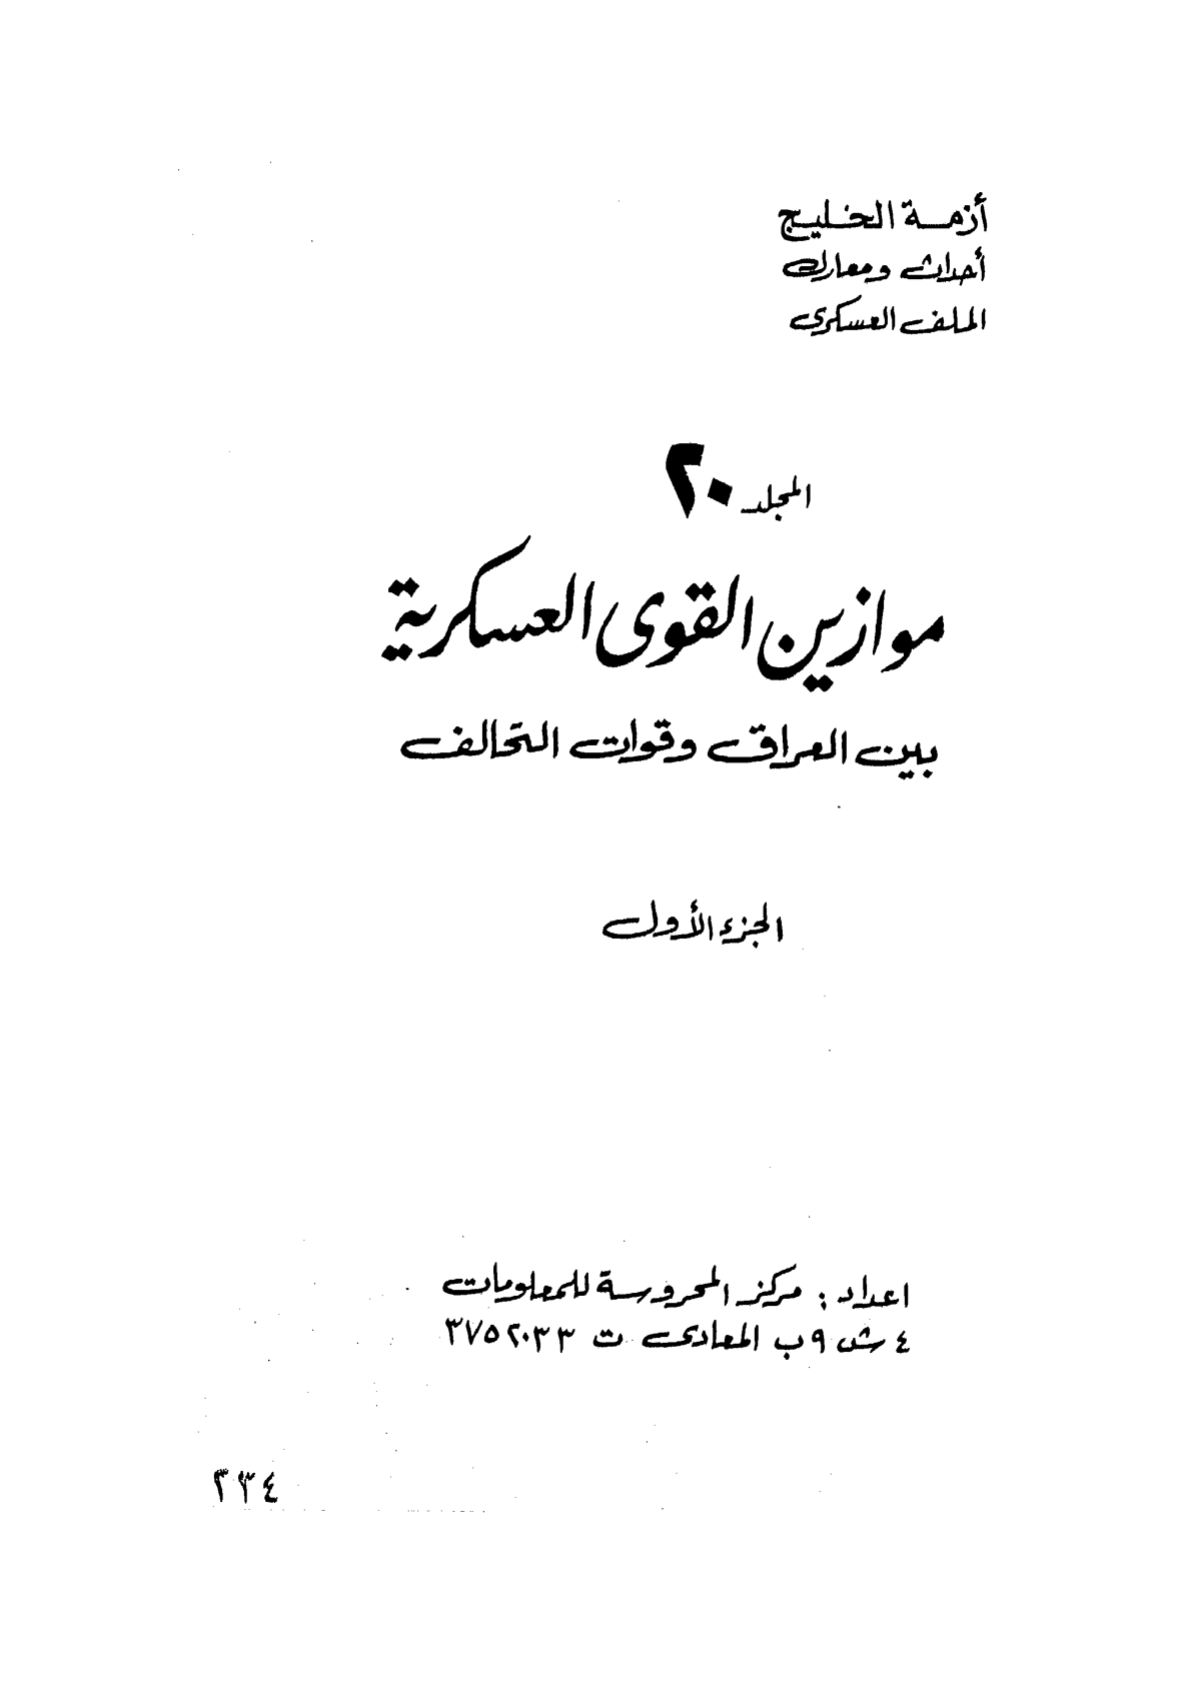 أزمة الخليج
أحداث ومعارك
الملف العسكرى
المجلد ٢٠
موازين القوى العسكرية
بين العراق وقوات التحالف
الجزء الأول
اعداد : مركز المحروسة للمعلومات
٤ ش ٩ ب المعادى ت ٣٧٥٢٠٣٣
٢٣٤